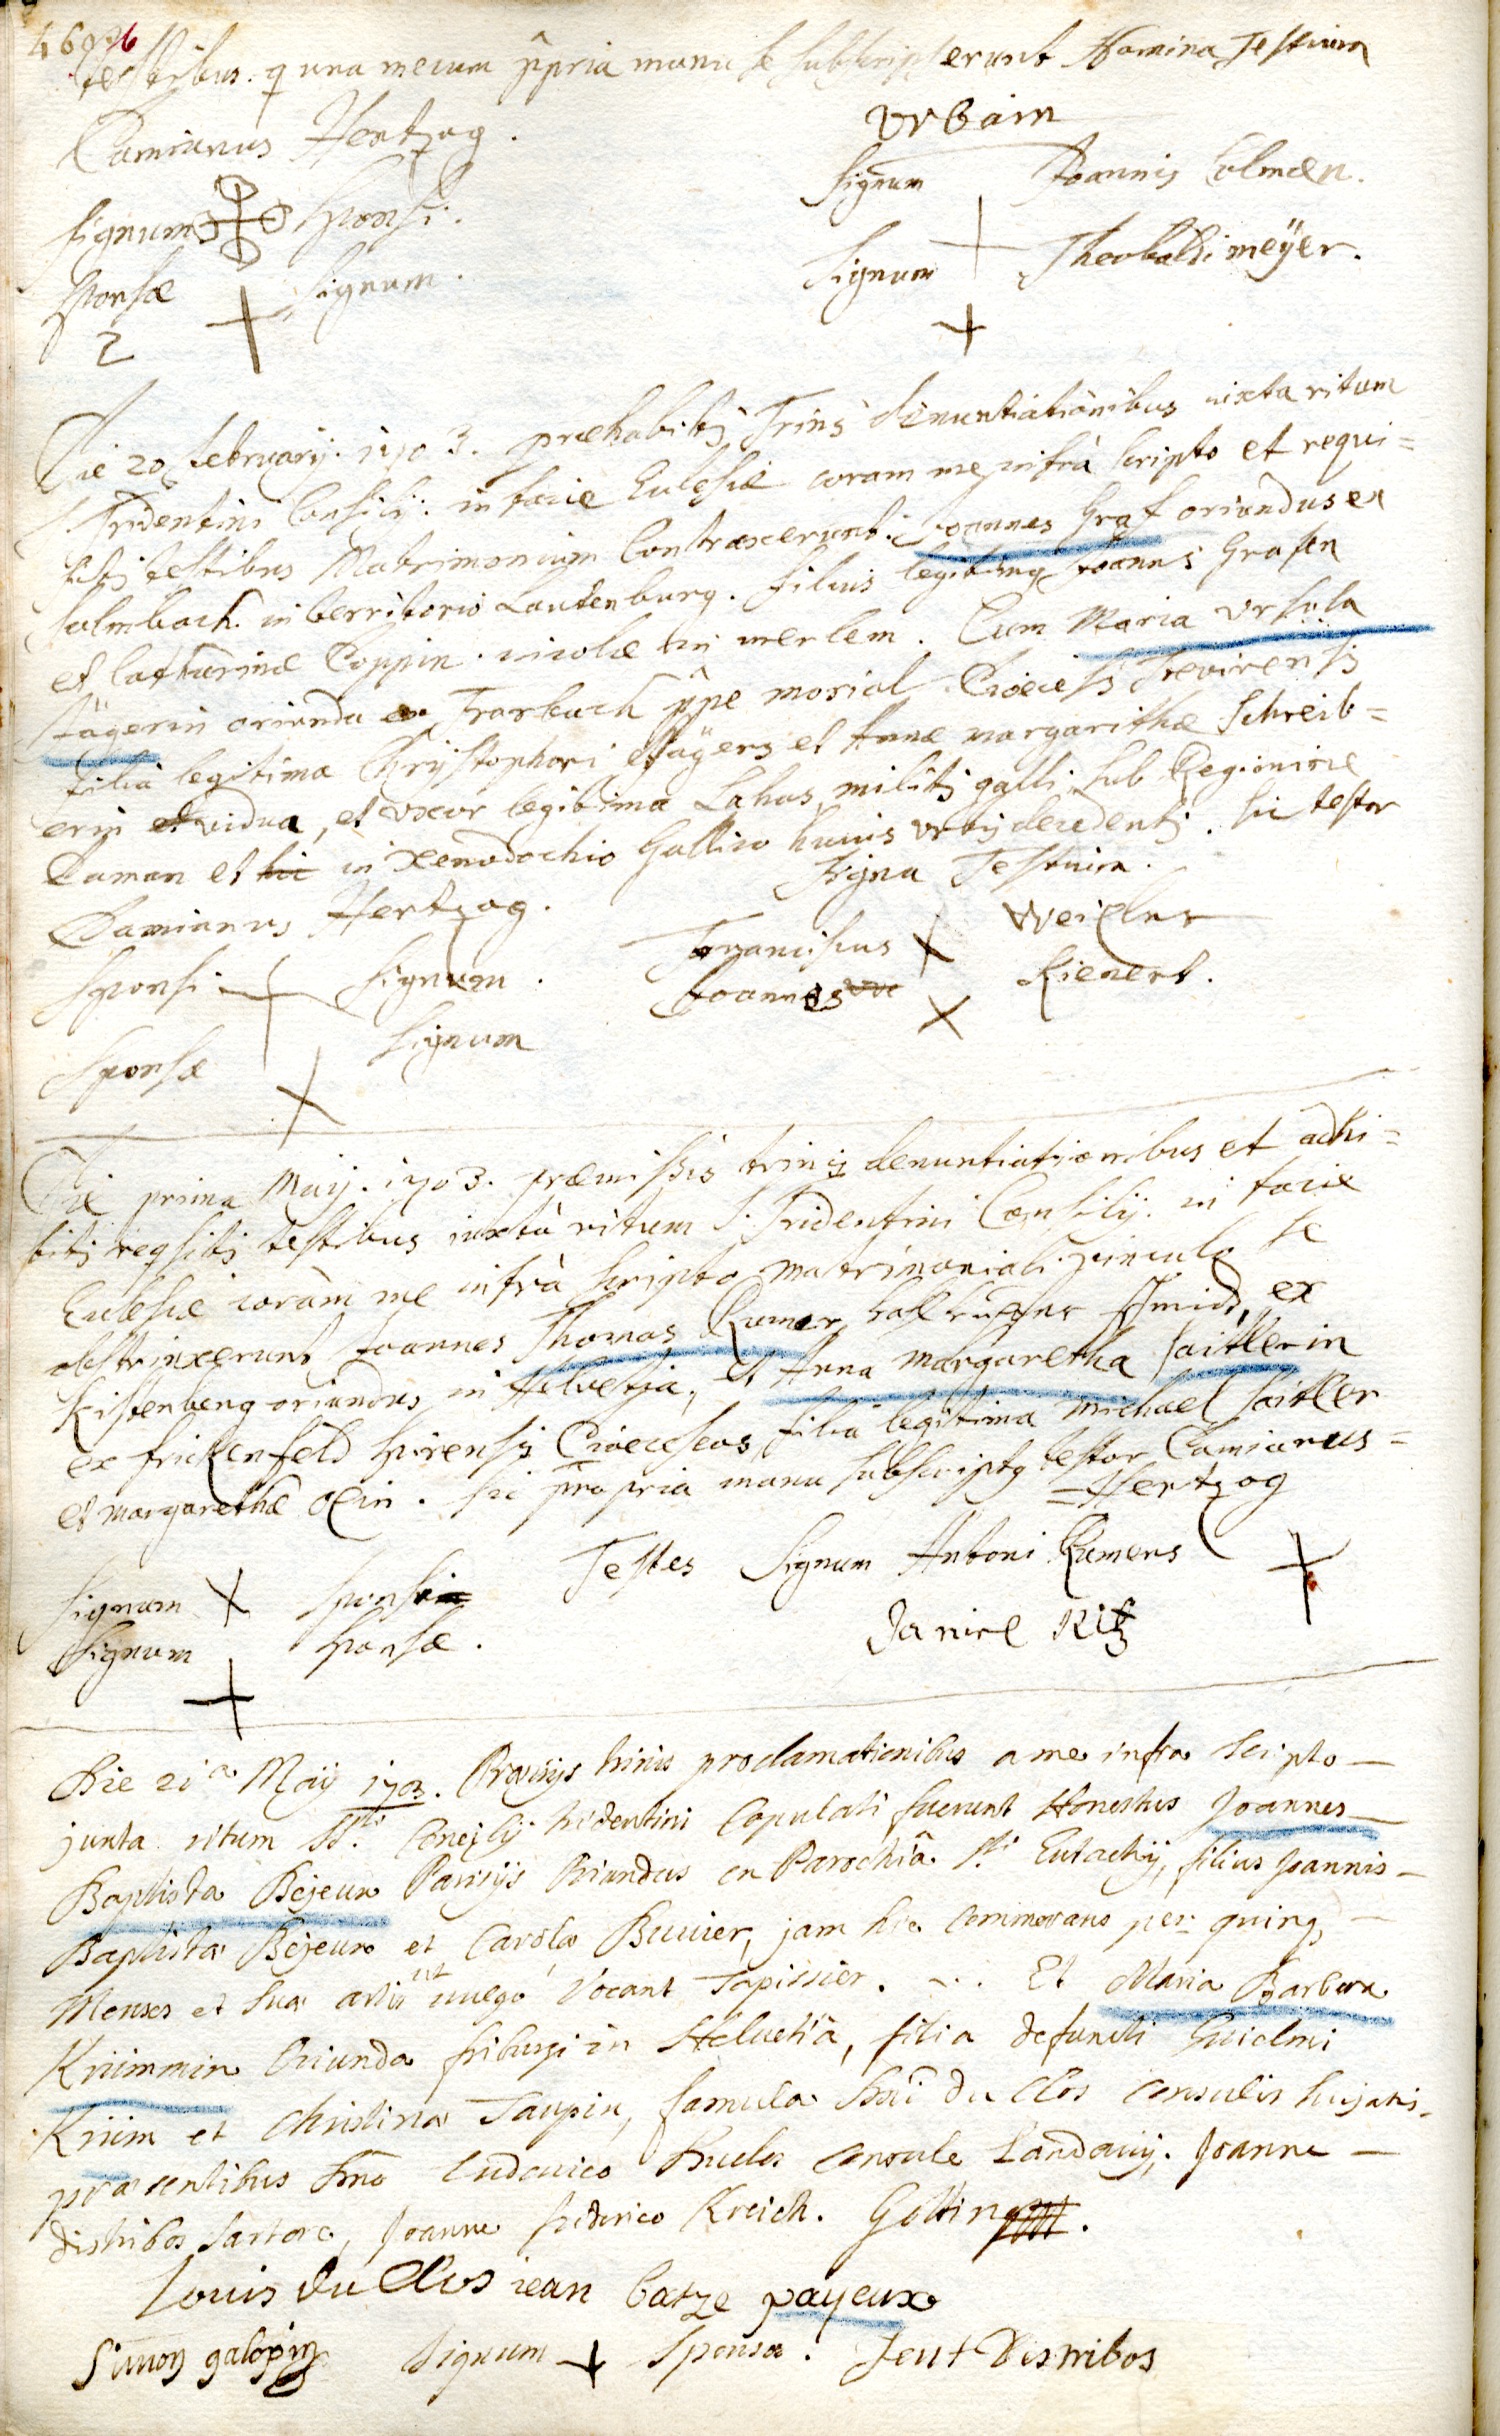 46
testibus. q una mecum ppria manu se subscripserunt Nomina Testium
Damianus Hertzog. Urbain
signum sponsi. signum Joannis Colman.
sponsæ signum. signum Theobaldi meÿer.
2
Die 20 februarij. 1703. præhabitis Trinis denuntiationibus iuxta ritum
S. Tridentini Consilij. in facie Eclesiæ coram me infrà scripto et requi=
sitis testibus Matrimonium Contraxerunt. Joannes Graf oriundus ex
Sulmbach. in territorio Lautenburg. filius legitimq Joannis Grafen
et Catharinæ Coppin. incolæ in merlem. Cum Maria Ursula
Jägerin orianda ex Trarbach ppe mosial. Diœcesis Trevirensis
filia legitima Christophori Jägers et Annæ margarithæ Schreib=
erin et vidua, et uxor legitima Lahus militis galli sub Regimine
Daman et hic in Xenodochio Gallico huius urbis decedentis. sic testor
Damianus Hertzog. Signa Testium.
Sponsi signum. Franciscus Weixler
Sponsæ signum Joannes Rienert.
Die prima Maij. 1703. præmissis trinis denuntiationibus et adhi=
bitis reqsitis testibus iuxtà ritum S. Tridentini Consilij. in facie
Eclesiæ coràm me infrà scripto matrimoniali vinculo se
obstrinxerunt Joannes Thomas Rumer ex
Kistenberg oriundus in Helvetia, et Anna margaretha saittlerin
ex frickenfeld spirensis Diœceseos, filia legitima michael saitler
et margarethæ Oein. sic propria manu subscriptq testor Damianus=
=Hertzog
signum sponsi Testes Signum Antoni Rumers
signum sponsæ. Daniel Kitz
Die 21a Maij 1703. Prævijs trinis proclamationibus a me infra scripto —
juxta ritum SSti Concilij tridentini Copulati fuerunt Honestus Joannes —
Baptista Bejeux Parisijs Oriundus ex Parochiâ sti Eustachij, filius Joannis —
Baptistæ Bejeux et Carolæ Buvier, jam hic Commorans per quinq —
Menses et suæ artis ut vulgo Vocant Tapissier. Et Maria Barbara
Kriimmin Oriunda friburgi in Helvetiâ, filia defuncti Guielmi
Kriim et Christina Taupin, famula Dni du Clos Consulis hujatis.
præsentibus Dno Ludovico Duclos Consule Landavij. Joanne —
distribos sartore, Joanne friderico Kreich. Gotting.
Louis du Clos jean batze payeux
Simon galopin signum Sponsæ. Jent Distribos